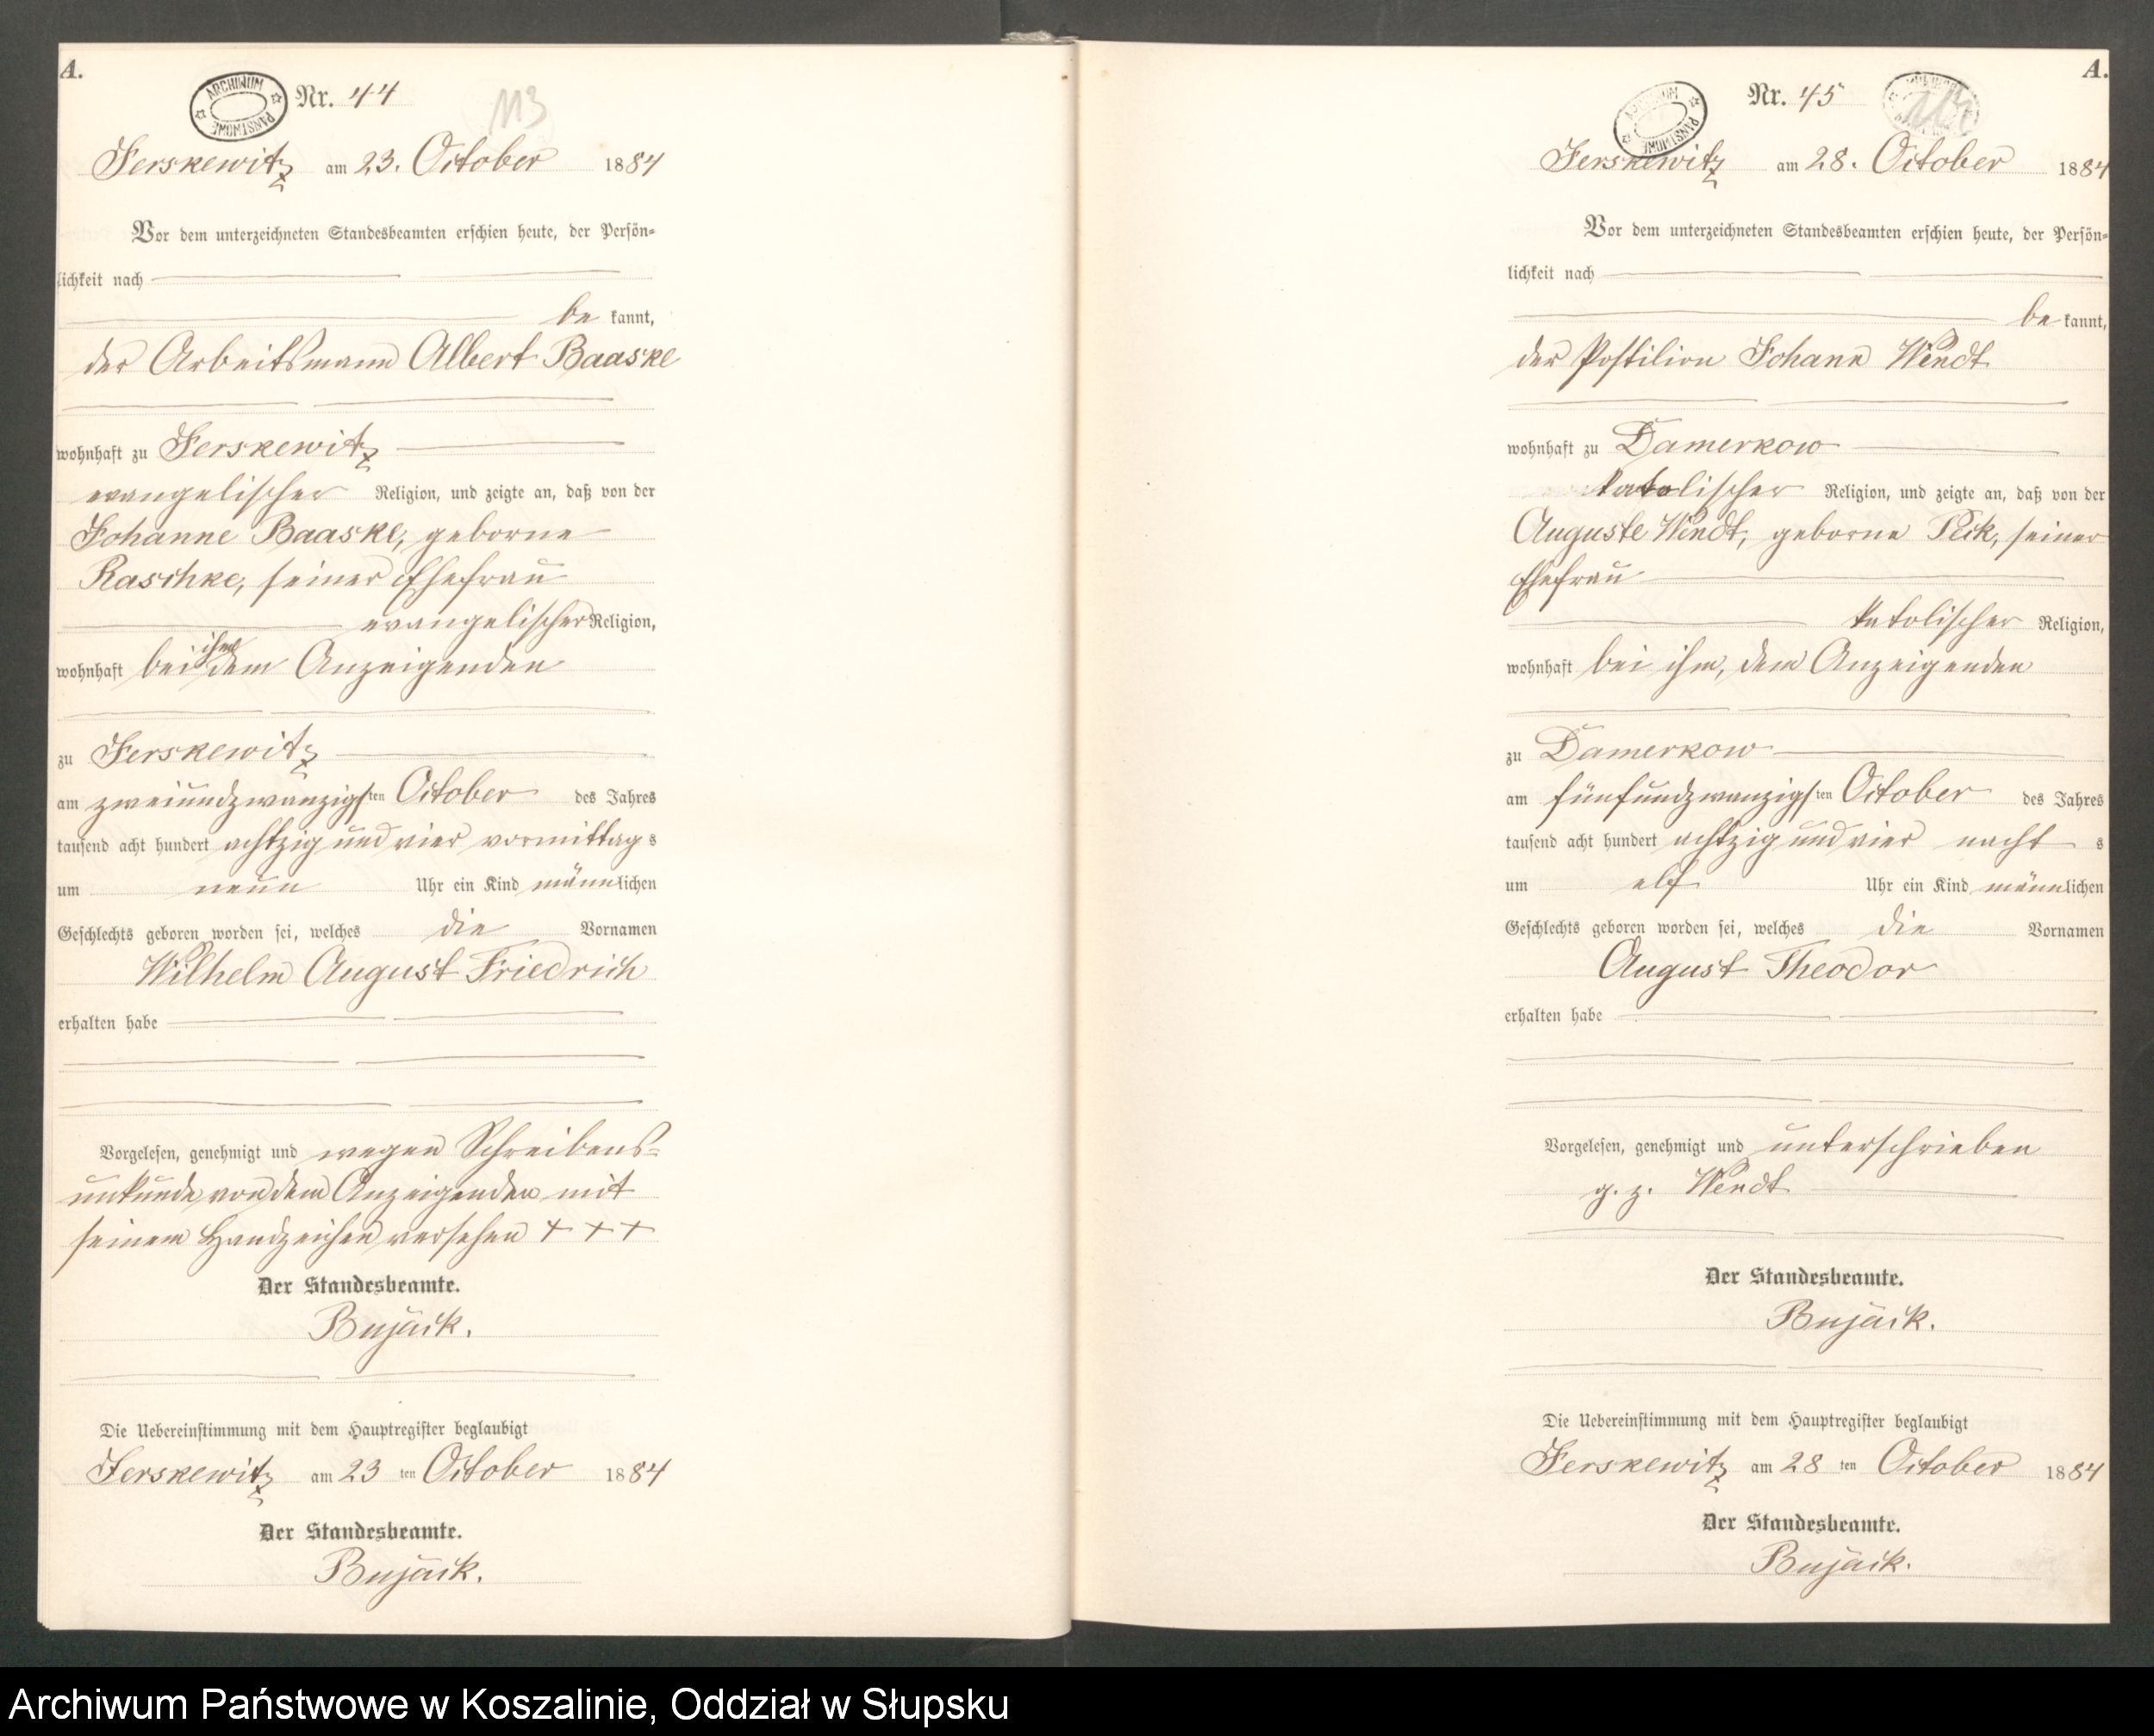 A.
ARCHIWUM PAŃSTWOWE
Nr. 44
113
Jerskewitz am 23. October 1884
Vor dem unterzeichneten Standesbeamten erschien heute, der Persön-
lichkeit nach
be kannt,
der Arbeitsmann Albert Baaske
wohnhaft zu Jerskewitz
evangelischer Religion, und zeigte an, daß von der
Johanne Baaske, geborne
Raschke, seiner Ehefrau
evangelischer Religion,
wohnhaft bei ihm dem Anzeigenden
zu Jerskewitz
am zweiundzwanzigsten October des Jahres
tausend acht hundert achtzig und vier vormittags
um neun Uhr ein Kind männlichen
Geschlechts geboren worden sei, welches die Vornamen
Wilhelm August Friedrich
erhalten habe
Vorgelesen, genehmigt und wegen Schreibens-
unkunde von dem Anzeigenden mit
seinem Handzeichen versehen + + +
Der Standesbeamte.
Bujack.
Die Uebereinstimmung mit dem Hauptregister beglaubigt
Jerskewitz am 23 ten October 1884
Der Standesbeamte.
Bujack.
A.
ARCHIWUM PAŃSTWOWE
Nr. 45
Jerskewitz am 28. October 1884
Vor dem unterzeichneten Standesbeamten erschien heute, der Persön-
lichkeit nach
be kannt,
der Postilion Johann Wendt
wohnhaft zu Damerkow
katolischer Religion, und zeigte an, daß von der
Auguste Wendt, geborne Peck, seiner
Ehefrau
katolischer Religion,
wohnhaft bei ihm, dem Anzeigenden
zu Damerkow
am fünfundzwanzigsten October des Jahres
tausend acht hundert achtzig und vier nachts
um elf Uhr ein Kind männlichen
Geschlechts geboren worden sei, welches die Vornamen
August Theodor
erhalten habe
Vorgelesen, genehmigt und unterschrieben
g. z. Wendt
Der Standesbeamte.
Bujack.
Die Uebereinstimmung mit dem Hauptregister beglaubigt
Jerskewitz am 28 ten October 1884
Der Standesbeamte.
Bujack.
Archiwum Państwowe w Koszalinie, Oddział w Słupsku